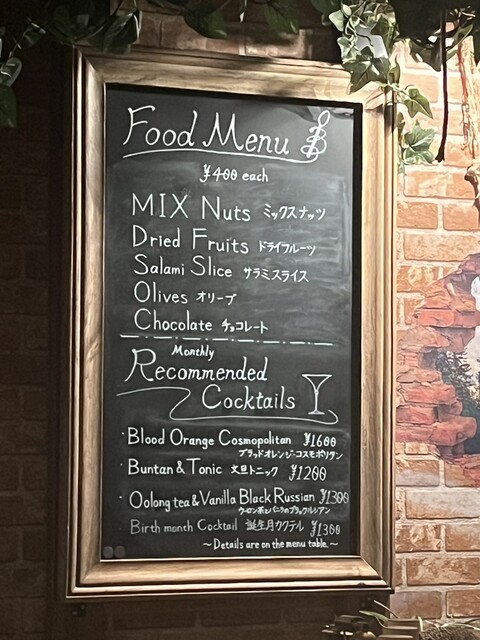 Food Menu
¥400 each
MIX Nuts ミックスナッツ
Dried Fruits ドライフルーツ
Salami Slice サラミスライス
Olives オリーブ
Chocolate チョコレート
Monthly
Recommended
Cocktails
・Blood Orange Cosmopolitan ¥1600
ブラッドオレンジ・コスモポリタン
・Buntan & Tonic 文旦トニック ¥1200
・Oolong tea & Vanilla Black Russian ¥1300
ウーロン茶とバニラのブラックルシアン
・Birth month Cocktail 誕生月カクテル ¥1300
～Details are on the menu table.～